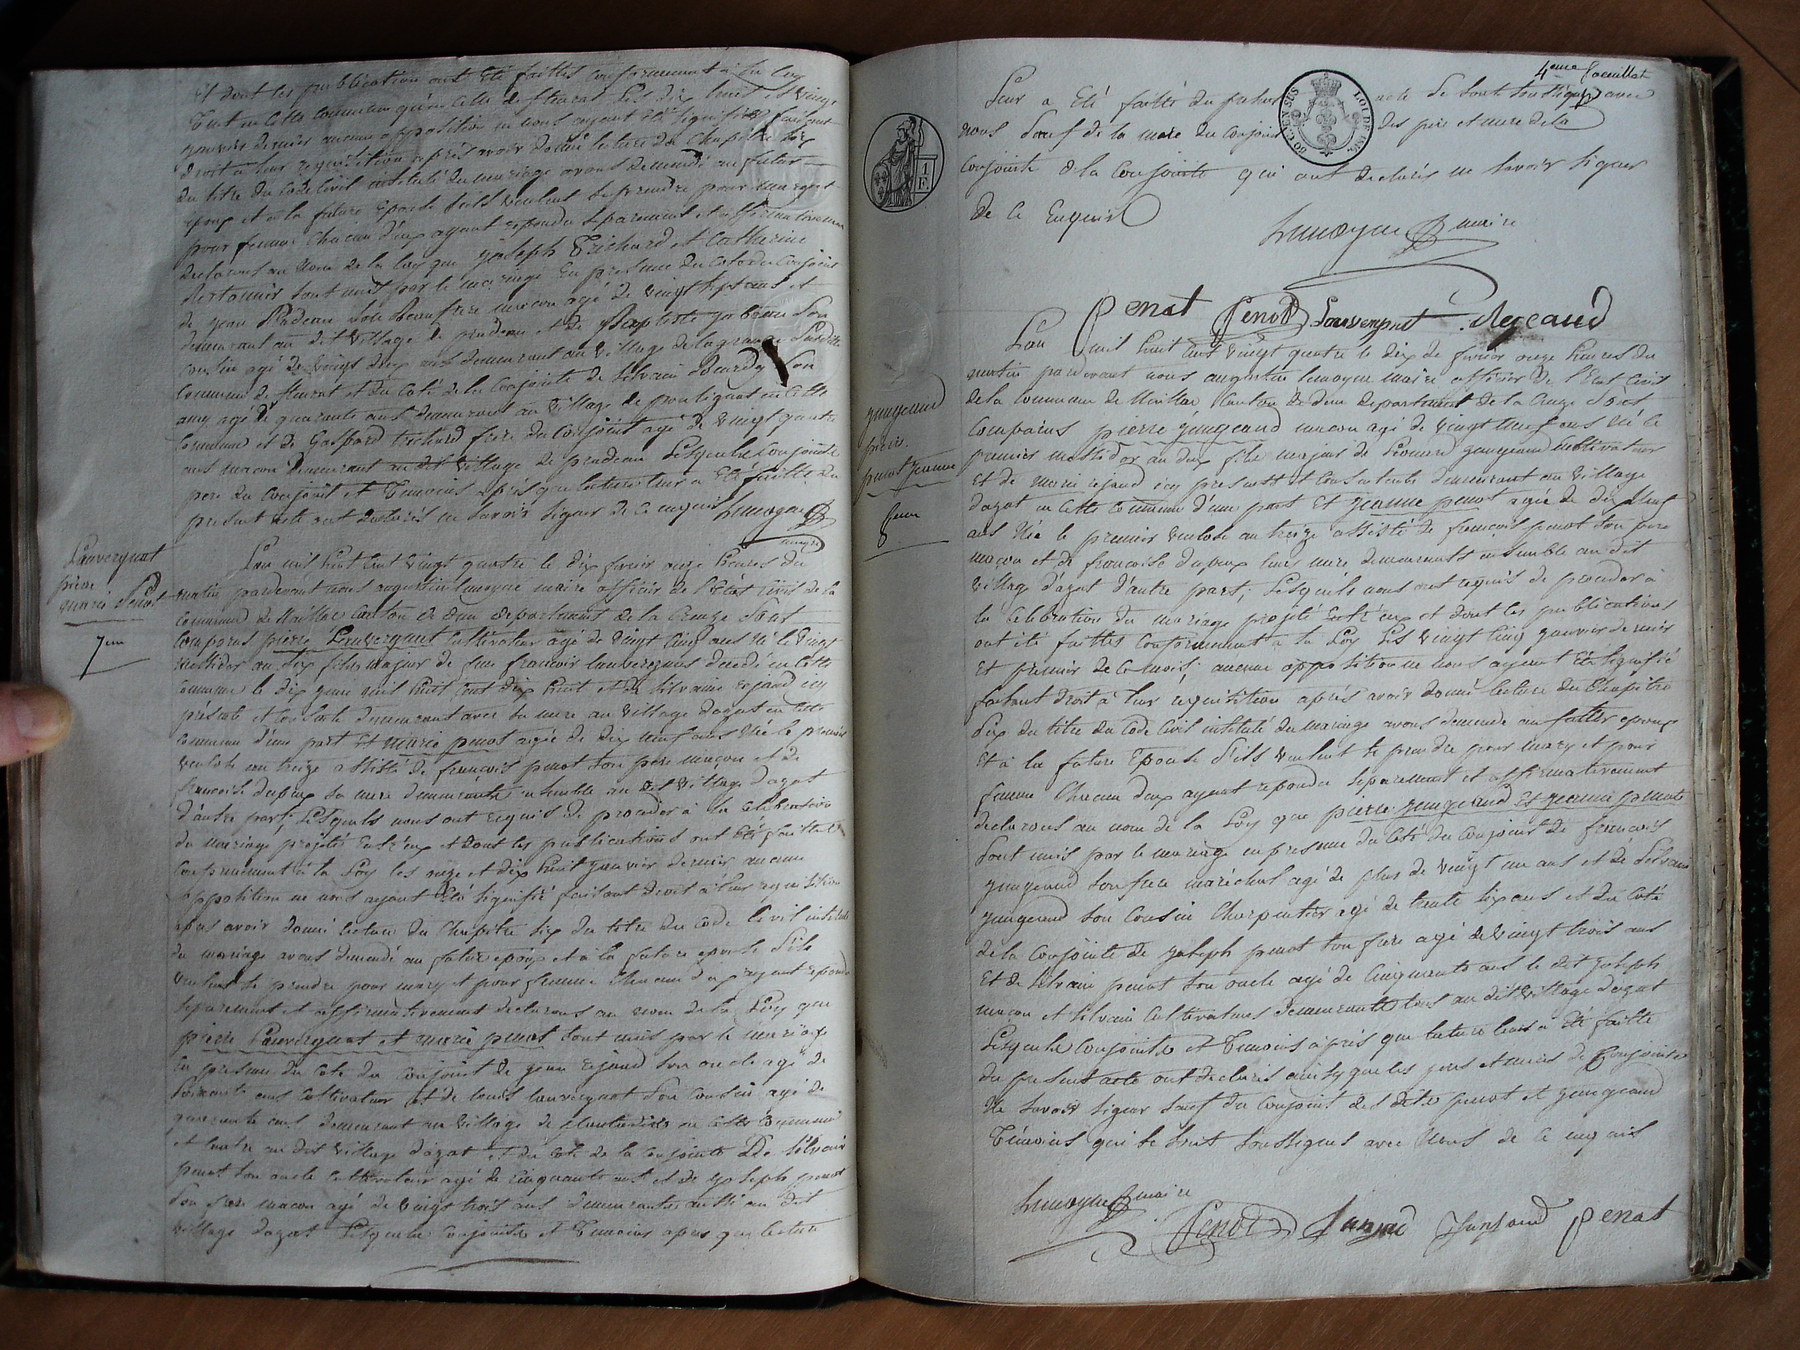 Et dont les publication ont été faittes conformement à la loy
tant en cette commune qu'en celle de fleurat les dix huit et vingt
janvier dernier aucune opposition ne nous ayant été signifiée faisant
droit a leur requisition apres avoir donné lecture du chapitre six
du titre du Code Civil intitulé du mariage avons demandé au futur
epoux et a la future epouse s'ils veulent se prendre pour mary et
pour femme chacun d'eux ayant repondu separement et affirmativement
declarons au nom de la loy que joseph trichard et Catherine
sont unis par le mariage En presence du coté du Conjoint
de jean son beaufrere maçon agé de vingt sept ans et
demeurant au dit village de prudeau et de Baptiste son
cousin agé de vingt deux ans demeurant au village de lagrange susditte
commune de fleurat et du coté de la Conjointe de Silvain Bourdy son
amy agé de quarante ans demeurant au village de pontignat en cette
commune et de Gaspard trichard frere du Conjoint agé de vingt quatre
ans maçon demeurant au dit village de prudeau Lesquels Conjoints
pere du Conjoint et temoins après que lecture leur a été faitte du
present acte ont declarés ne savoir signer de ce enquis Lemoyne
maire
Lauvergnat
pierre
marie penot
7eme
L'an mil huit cent vingt quatre le dix fevrier onze heures du
matin pardevant nous augustin lemoyne maire officier de l'Etat civil de la
commune de Naillac Canton de dun departement de la Creuze Sont
comparus pierre Lauvergnat cultivateur agé de vingt cinq ans né le vingt
messidor an six fils majeur de feu francois lauvergnat decedé en cette
commune le dix juin mil huit cent dix huit et de Silvaine rejaud icy
présente et demeurant avec sa mere au village dazat en cette
commune d'une part Et marie penot agée de dix neuf ans née le premier
ventose an treize assistée de françois penot son père maçon et de
francoise dupeux sa mere demeurants ensemble au dit village dazat
d'autre part; Lesquels nous ont requis de proceder à la celebration
du mariage projetté entr'eux et dont les publications ont été faittes
conformement à la loy les onze et dix huit janvier dernier aucune
opposition ne nous ayant été signifié faisant droit à leur requisition
apres avoir donné lecture du chapitre six du titre du code Civil intitulé
du mariage avons demandé au futur epoux et à la future epouse s'ils
veulent se prendre pour mary et pour femme chacun d'eux ayant repondu
separement et affirmativement declarons au nom de la loy que
pierre Lauvergnat et marie penot sont unis par le mariage
En presence du coté du conjoint de jean rejaud son oncle agé de
soixante ans cultivateur et de louis lauvergnat son cousin agé de
quarante ans demeurant au village de en cette commune
et l'autre au dit village dazat et du coté de la conjointe De Silvain
penot son oncle cultivateur agé de cinquante ans et de joseph penot
son frere maçon agé de vingt trois ans demeurants aussi au dit
village dazat Lesquels Conjoints et temoins apres que lecture
4eme foeuillet
leur a été faitte du présent acte se sont soussignés avec
nous Sauf de la mere du conjoint des pere et mere de la
conjointe & la Conjointe qui ont declarés ne savoir signer
de ce Enquis
Lemoyne maire
penot Penot Lauvergnat Rejeaud
1 F.
jeangeaud
pierre
penot jeanne
8eme
L'an mil huit cent vingt quatre le dix de fevrier onze heures du
matin pardevant nous augustin lemoyne maire officier de l'Etat Civil
de la Commune de Naillac Canton de dun departement de la Creuze Sont
Comparus pierre jeangeaud maçon agé de vingt neuf ans né le
premier messidor an deux fils majeur de Léonard jeangeaud cultivateur
Et de marie rejaud icy presents et consentents demeurant au village
dazat en cette commune d'une part Et jeanne penot agée de dix neuf
ans née le premier ventose an treize assistée de françois penot son pere
maçon et de francoise dupeux sa mere demeurants ensemble au dit
village d'azat d'autre part; Lesquels nous ont requis de proceder à
la celebration du mariage projetté entr'eux et dont les publications
ont été faittes conformement à la Loy Les vingt cinq janvier dernier
Et premier de ce mois; aucune opposition ne nous ayant été signifié
faisant droit à leur requisition après avoir donné lecture du chapitre
Six du titre du Code Civil intitulé du mariage avons demandé au futur epoux
Et à la future Epouse s'ils veulent se prendre pour mary et pour
femme chacun d'eux ayant repondu séparement et affirmativement
declarons au nom de la Loy que pierre jeangeaud Et jeanne penot
Sont unis par le mariage en presence du coté du Conjoint de francois
jeangeaud son frere maréchal agé de plus de vingt un ans et de Silvain
jeangeaud son cousin charpentier agé de trente six ans et du coté
de la conjointe de joseph penot son frere agé de vingt trois ans
Et de Silvain penot son oncle agé de cinquante ans le dit joseph
maçon et Silvain Cultivateur demeurants tous au dit village dazat
Lesquels Conjoints et temoins après que lecture leur a été faitte
du present acte ont declarés ainsy que les peres et meres de conjoints
Ne Savoir Signer Sauf du Conjoint des dits penot et jeangeaud
Témoins qui se sont soussignés avec Nous de ce enquis
Lemoyne maire
Penot penot